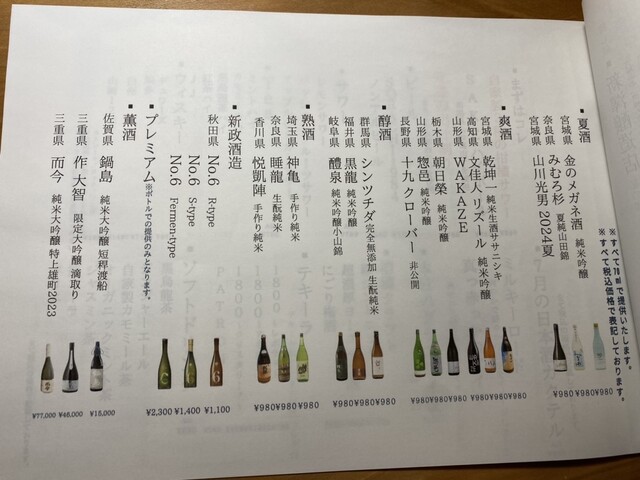 ※すべて70mlで提供いたします。
※すべて税込価格で表記しております。
▪夏酒
宮城県 金のメガネ酒 純米吟醸 ¥980
奈良県 みむろ杉 夏純山田錦 ¥980
宮城県 山川光男2024夏 ¥980
▪爽酒
宮城県 乾坤一 純米生酒ササニシキ ¥980
高知県 文佳人 リズール 純米吟醸 ¥980
山形県 WAKAZE ¥980
栃木県 朝日榮 純米吟醸 ¥980
山形県 惣邑 純米吟醸 ¥980
長野県 十九 クローバー 非公開 ¥980
▪醇酒
群馬県 シンツチダ 完全無添加 生酛純米 ¥980
福井県 黒龍 純米吟醸 ¥980
岐阜県 醴泉 純米吟醸小山錦 ¥980
▪熟酒
埼玉県 神亀 手作り純米 ¥980
奈良県 睡龍 生酛純米 ¥980
香川県 悦凱陣 手作り純米 ¥980
▪新政酒造
秋田県 No.6 R-type ¥1,100
No.6 S-type ¥1,400
No.6 Fermen-type ¥2,300
▪プレミアム ※ボトルでの提供のみとなります。
▪薫酒
佐賀県 鍋島 純米大吟醸 短稈渡船 ¥15,000
三重県 作 大智 限定大吟醸 滴取り ¥46,000
三重県 而今 純米大吟醸 特上雄町2023 ¥77,000